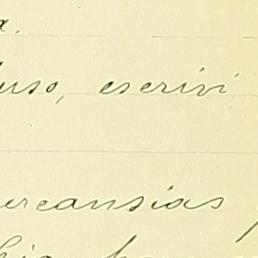 a.
uso, escrivi
ercansias